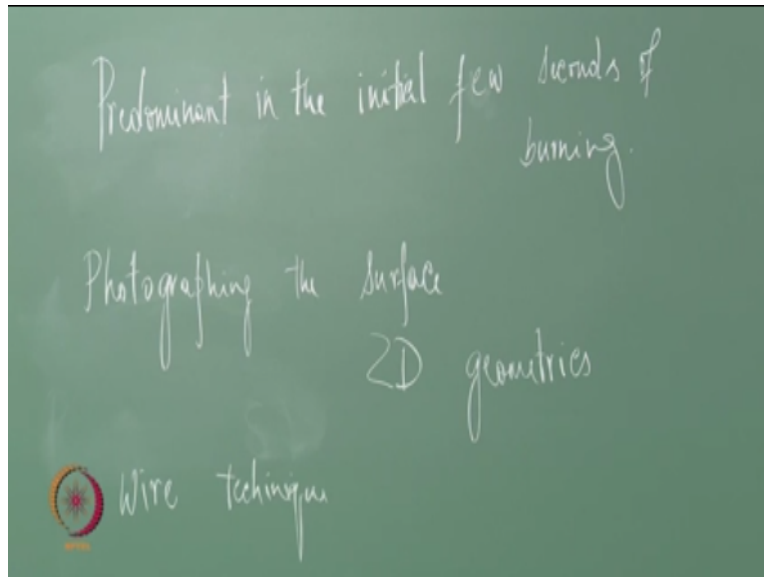 Predominant in the initial few seconds of
burning.
Photographing the surface
2D geometries
Wire technique
NPTEL